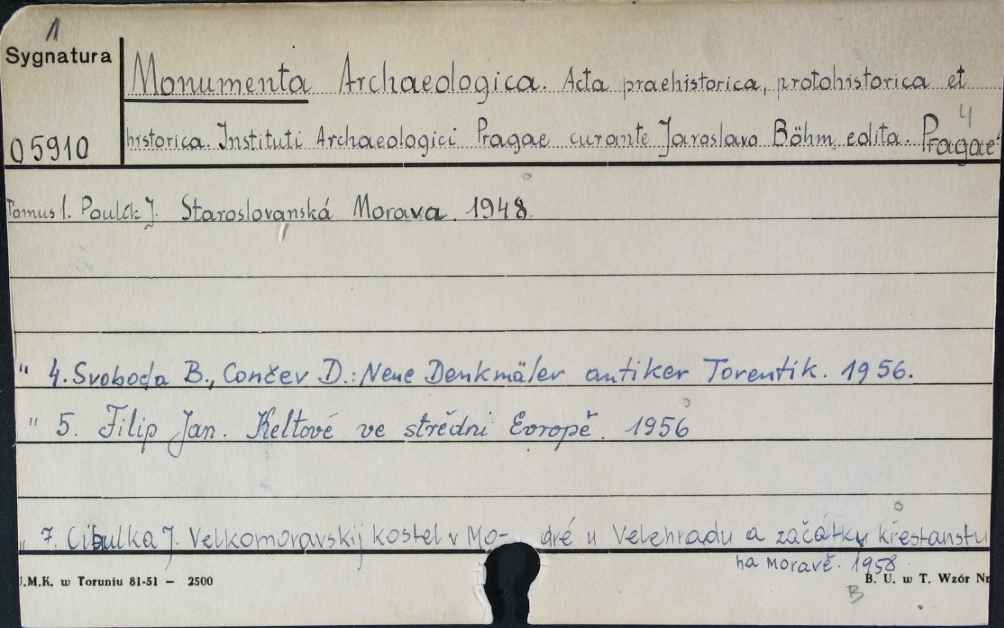 1
Sygnatura
05910
Monumenta Archaeologica. Acta praehistorica, protohistorica et
historica. Instituti Archaeologici Pragae curante Jaroslavo Böhm edita. Pragae
4
Tomus I. Poulík J. Staroslovanská Morava. 1948.
" 4. Svoboda B., Cončev D.: Neue Denkmäler antiker Toreutik. 1956.
" 5. Filip Jan. Keltové ve střědni Evropě. 1956
" 7. Cibulka J. Velkomoravskij kostel v Mo- dré u Velehradu a začátky křestanstu
na Moravě. 1958
.M.K. w Toruniu 81-51 — 2500
B. U. w T. Wzór Nr
B